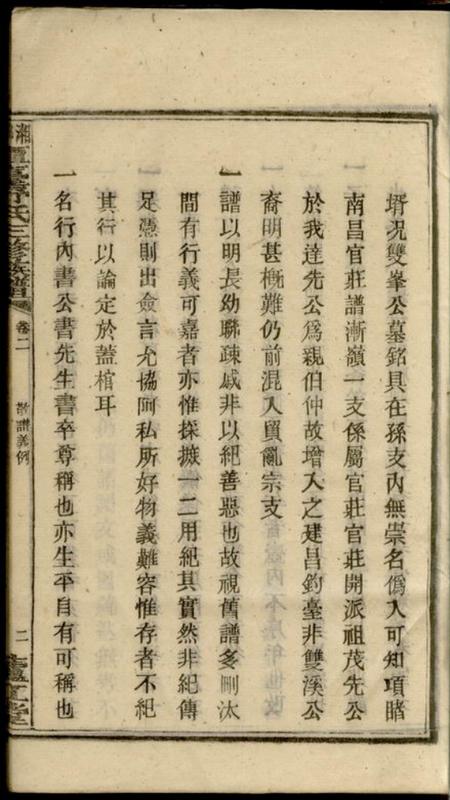 壻况雙峯公墓銘具在孫支內無崇名僞人可知項睹
南昌官莊譜漸嶺一支係屬官莊官莊開派祖茂先公
於我達先公爲親伯仲故增入之建昌釣臺非雙溪公
裔明甚槪難仍前混入貿亂宗支
一譜以明長幼聯疎戚非以紀善惡也故視舊譜多刪汰
間有行義可嘉者亦惟採摭一二用紀其實然非紀傳
足憑則出僉言允協阿私所好物義難容惟存者不紀
其行以論定於蓋棺耳
一名行內書公書先生書卒尊稱也亦生平自有可稱也
湘
氏三修族譜
卷二
散譜義例
二
堂